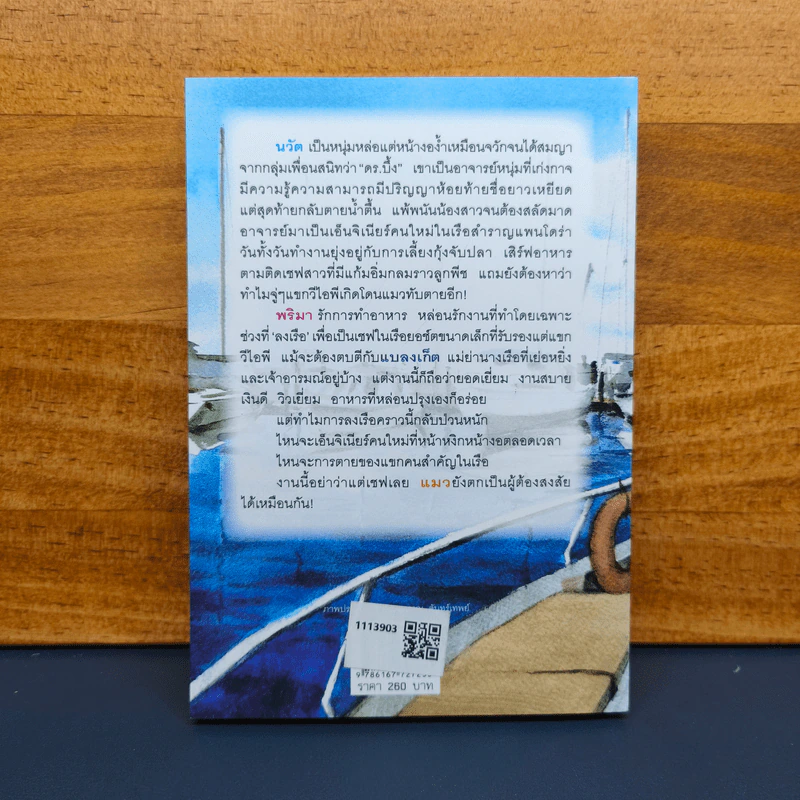 นวัต เป็นหนุ่มหล่อแต่หน้างอง้ำเหมือนจวักจนได้สมญา
จากกลุ่มเพื่อนสนิทว่า "ดร.บึ้ง" เขาเป็นอาจารย์หนุ่มที่เก่งกาจ
มีความรู้ความสามารถมีปริญญาห้อยท้ายชื่อยาวเหยียด
แต่สุดท้ายกลับตายน้ำตื้น แพ้พนันน้องสาวจนต้องสลัดมาด
อาจารย์มาเป็นเอ็นจิเนียร์คนใหม่ในเรือสำราญแพนโดร่า
วันทั้งวันทำงานยุ่งอยู่กับการเลี้ยงกุ้งจับปลา เสิร์ฟอาหาร
ตามติดเชฟสาวที่มีแก้มอิ่มกลมราวลูกพีช แถมยังต้องหาว่า
ทำไมจู่ๆแขกวีไอพีเกิดโดนแมวทับตายอีก!
พริมา รักการทำอาหาร หล่อนรักงานที่ทำโดยเฉพาะ
ช่วงที่ 'ลงเรือ' เพื่อเป็นเชฟในเรือยอช์ตขนาดเล็กที่รับรองแต่แขก
วีไอพี แม้จะต้องตบตีกับแบลงเก็ต แม่ย่านางเรือที่เย่อหยิ่ง
และเจ้าอารมณ์อยู่บ้าง แต่งานนี้ก็ถือว่ายอดเยี่ยม งานสบาย
เงินดี วิวเยี่ยม อาหารที่หล่อนปรุงเองก็อร่อย
แต่ทำไมการลงเรือคราวนี้กลับป่วนหนัก
ไหนจะเอ็นจิเนียร์คนใหม่ที่หน้าหงิกหน้างอตลอดเวลา
ไหนจะการตายของแขกคนสำคัญในเรือ
งานนี้อย่าว่าแต่เชฟเลย แมวยังตกเป็นผู้ต้องสงสัย
ได้เหมือนกัน!
1113903
ราคา 260 บาท